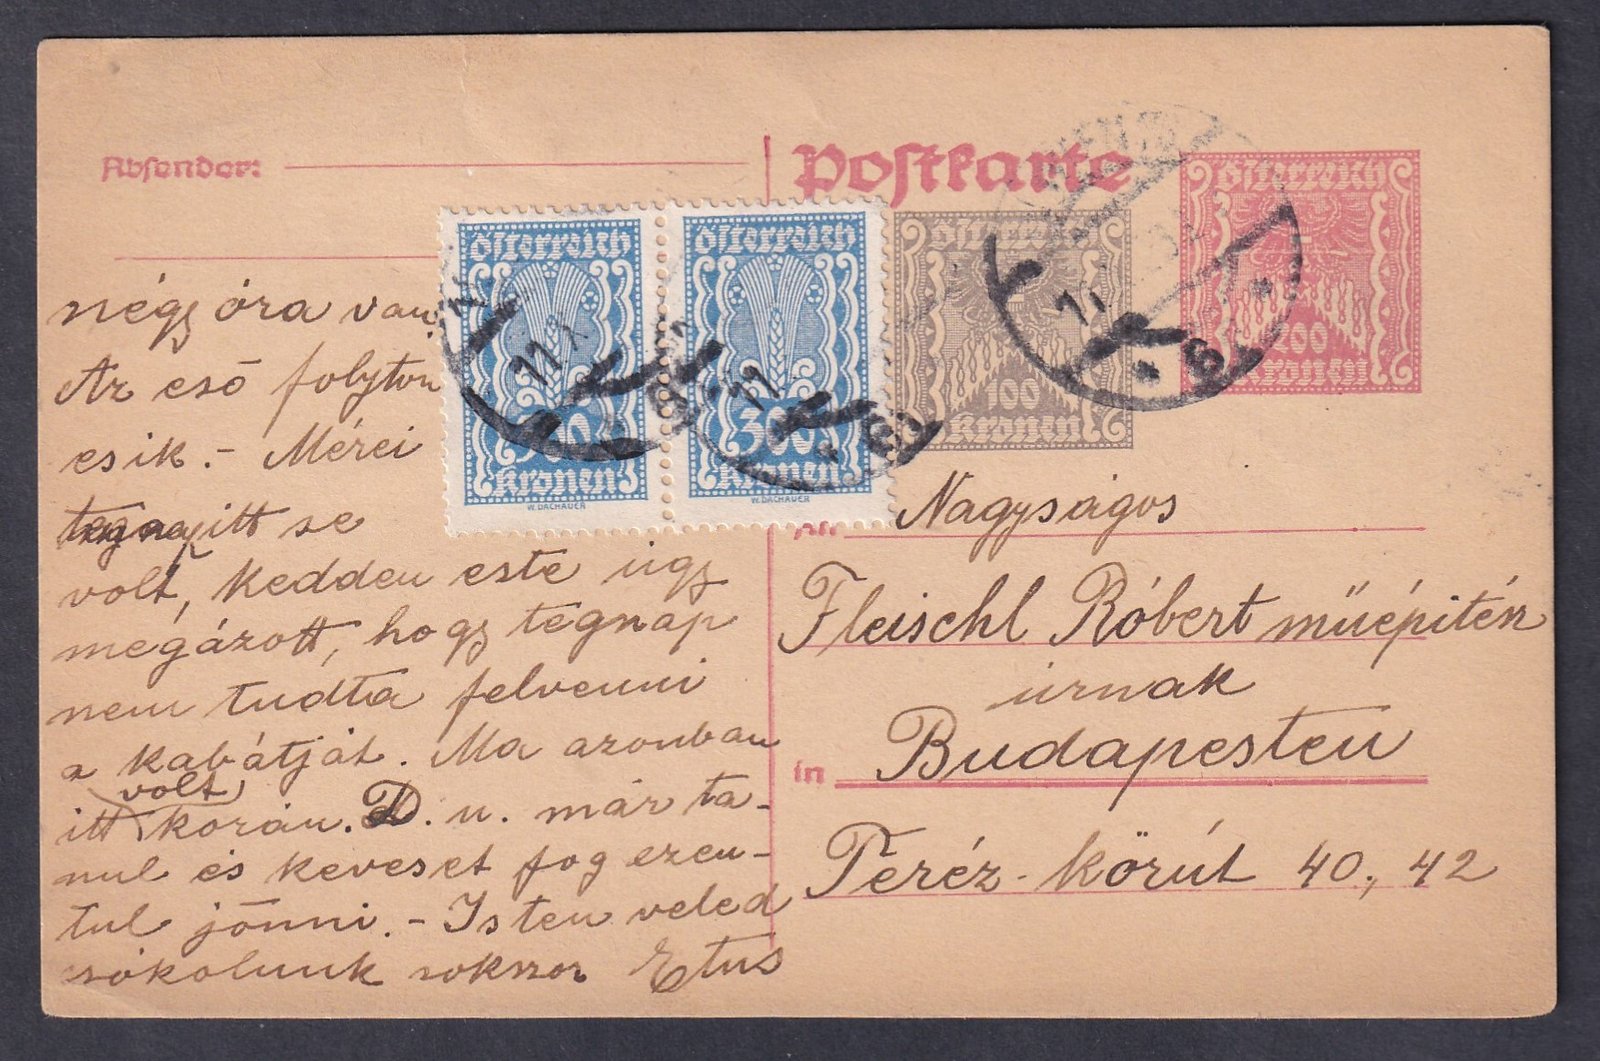 Absender:
Postkarte
österreich
200
kronen
österreich
100
kronen
österreich
300
kronen
W. DACHAUER
österreich
300
kronen
W. DACHAUER
négy óra van
Az eső folyton
esik. - Mérei
tegnap itt se
volt, kedden este úgy
megázott, hogy tegnap
nem tudta felvenni
a kabátját. Ma azonban
volt
itt korán. D. u. már ta-
nul és keveset fog ezen-
tul jönni. - Isten veled
csókolunk sokszor Etus
An Nagyságos
Fleischl Róbert műépitész
urnak
in Budapesten
Teréz-körút 40, 42